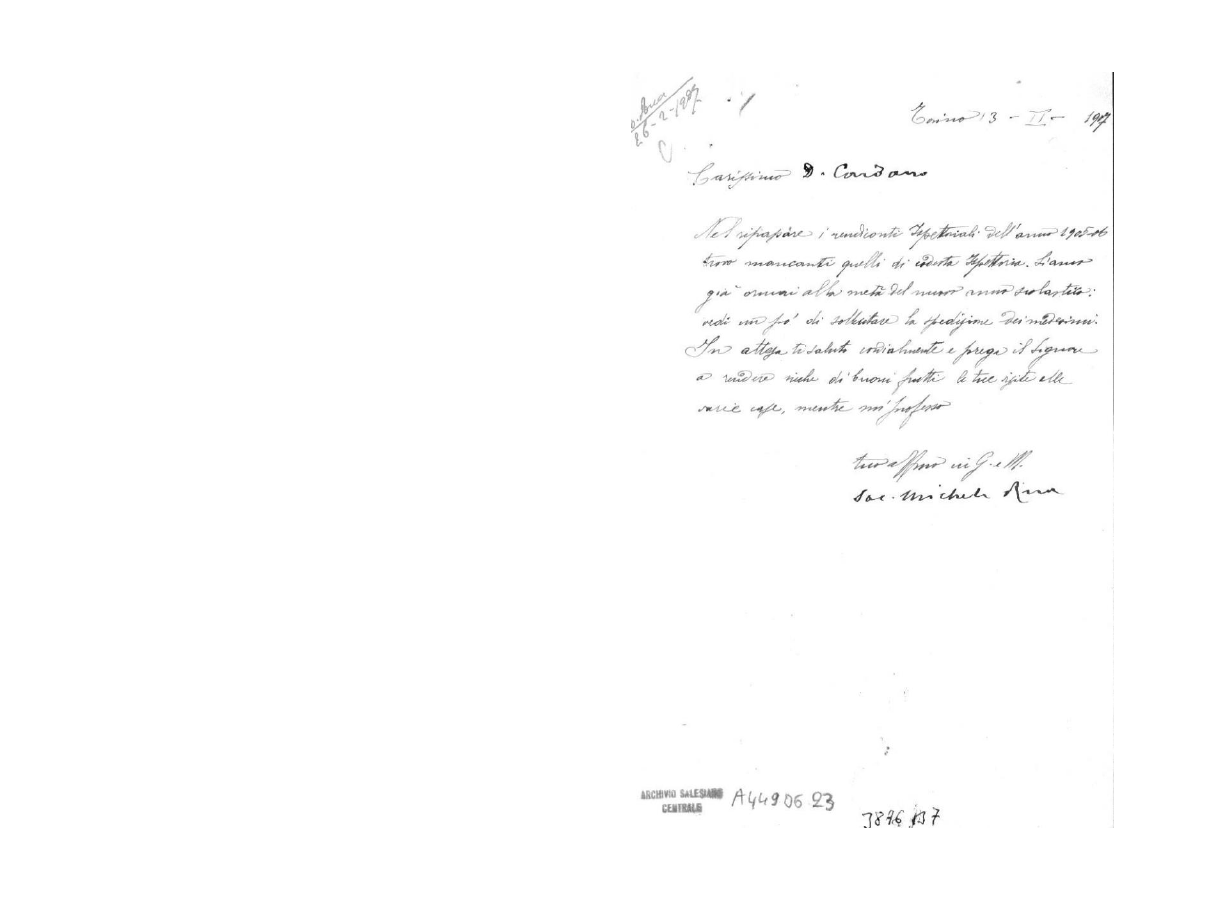 D. Rua
26-2-1907
C
Torino 13 - II - 1907
Carissimo D. Cardano
Nel ripassare i rendiconti Ispettoriali dell'anno 1905-06
trovo mancanti quelli di codesta Ispettoria. Siamo
già ormai alla metà del nuovo anno scolastico:
vedi un po' di sollecitare la spedizione dei medesimi.
In attesa ti saluto cordialmente e prego il Signore
a rendere ricche di buoni frutti le tue visite alle
varie case, mentre mi professo
tuo aff.mo in G. e M.
Sac. Michele Rua
ARCHIVIO SALESIANO
CENTRALE
A4490623
3896